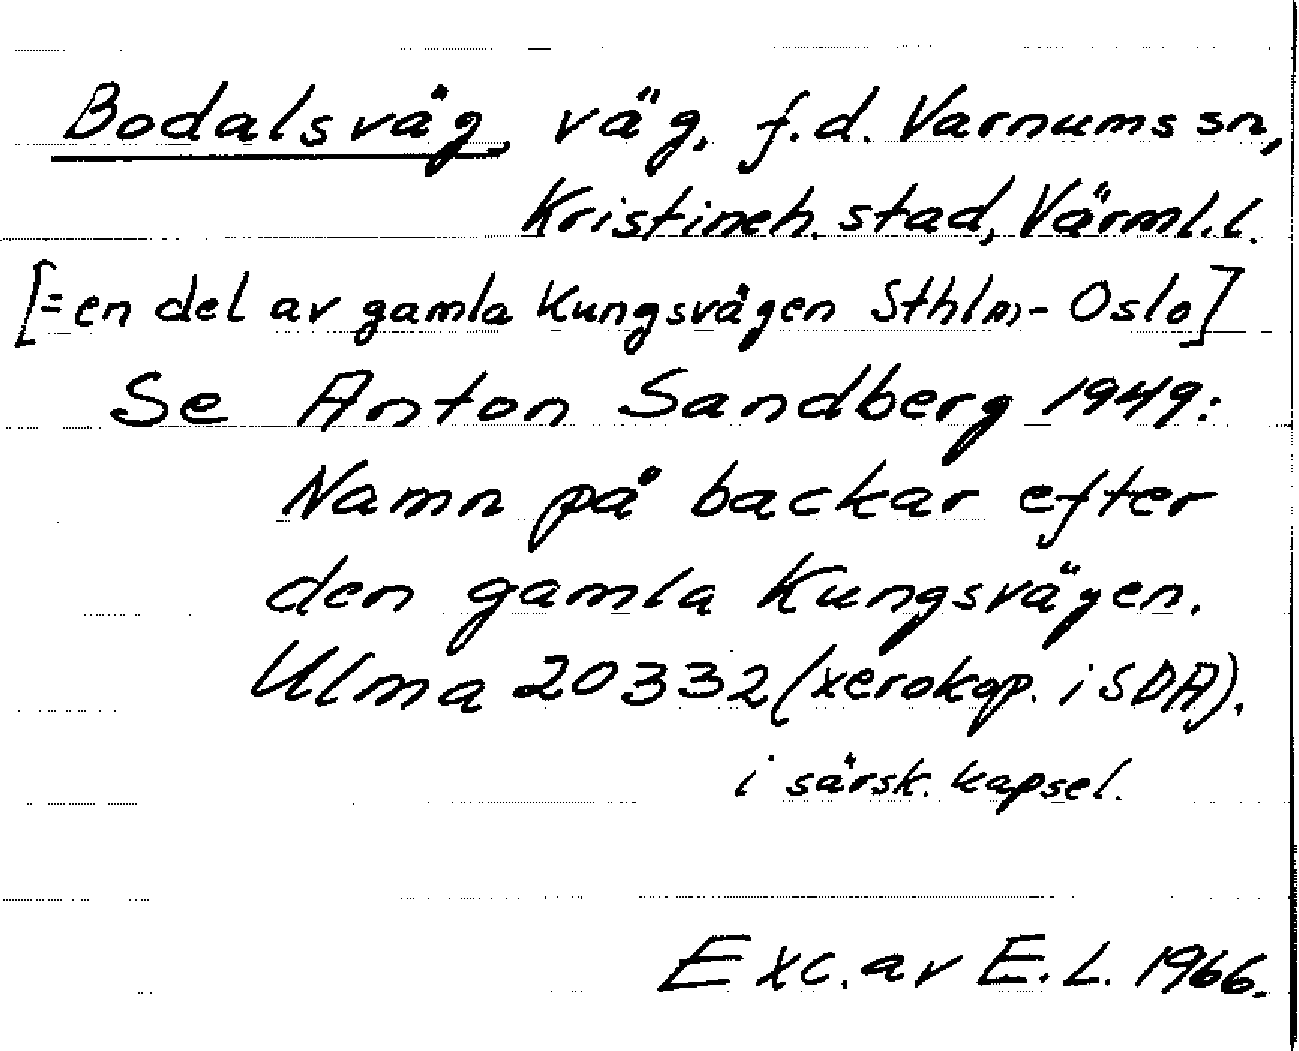 Bodalsväg, väg, f.d. Varnums sn,
Kristineh. stad, Värml.l.
[= en del av gamla Kungsvägen Sthlm - Oslo]
Se Anton Sandberg 1949:
Namn på backar efter
den gamla Kungsvägen.
Ulma 20332 (xerokop. i SDA).
i särsk. kapsel.
Exc. av E.L. 1966.